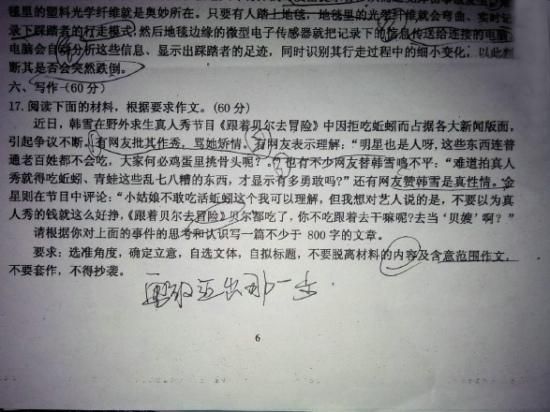 里的塑料光学纤维就是奥妙所在。只要有人踏上地毯，地毯里的光学纤维就会弯曲、实时记
录下踩踏者的行走模式，然后地毯边缘的微型电子传感器就把记录下的信息传送给连接的电脑，
电脑会自动分析这些信息、显示出踩踏者的足迹，同时识别其行走过程中的细小变化，以此判
断其是否会突然跌倒。
六、写作（60分）
17.阅读下面的材料，根据要求作文。（60分）
近日，韩雪在野外求生真人秀节目《跟着贝尔去冒险》中因拒吃蚯蚓而占据各大新闻版面，
引起争议不断。有网友批其作秀，骂她矫情。有网友表示理解：“明星也是人呀，这些东西连普
通老百姓都不会吃，大家何必鸡蛋里挑骨头呢？”也有不少网友替韩雪鸣不平：“难道拍真人
秀就得吃蚯蚓、青蛙这些乱七八糟的东西，才显示有多勇敢吗？”还有网友赞韩雪是真性情。金
星则在节目中评论：“小姑娘不敢吃活蚯蚓这个我可以理解，但我想对艺人说的是，不要以为真
人秀的钱就这么好挣，《跟着贝尔去冒险》贝尔都吃了，你不吃跟着去干嘛呢？去当‘贝嫂’啊？”
请根据你对上面的事件的思考和认识写一篇不少于 800 字的文章。
要求：选准角度，确定立意，自选文体，自拟标题，不要脱离材料的内容及含意范围作文，
不要套作，不得抄袭。
勇敢迈出那一步
6